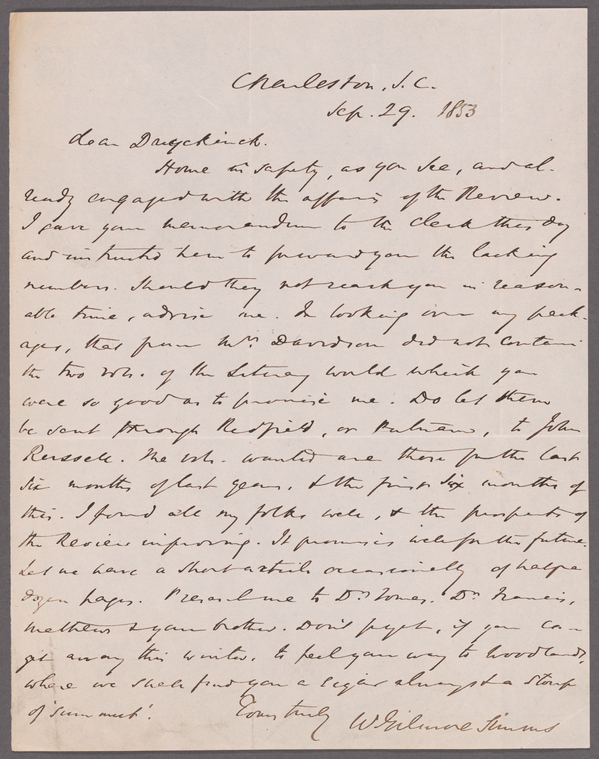 Charleston, S.C.
Sep. 29. 1853
dear Duyckinck.
Home in safety, as you see, and al-
ready engaged with the affairs of the Review.
I gave your memorandum to the clerk this day
and instructed him to forward you the lacking
numbers. Should they not reach you in reason-
able time, advise me. In looking over my pack-
ages, that from Mr. Davidson did not contain
the two vols. of the Literary World which you
were so good as to promise me. Do let them
be sent through Redfield, or Putnam, to John
Russell. The vols. wanted are those for the last
six months of last year, & the first six months of
this. I found all my folks well, & the prospects of
the Review improving. It promises well for the future.
Let me have a short article occasionally of half a
dozen pages. Present me to Dr. Tomes. Dr. Francis,
Mathews & your brother. Don't forget, if you can
get away this winter, to feel your way to Woodlands,
where we shall find you a segar always & a stoup
of 'summut'.
Yours truly
W Gilmore Simms